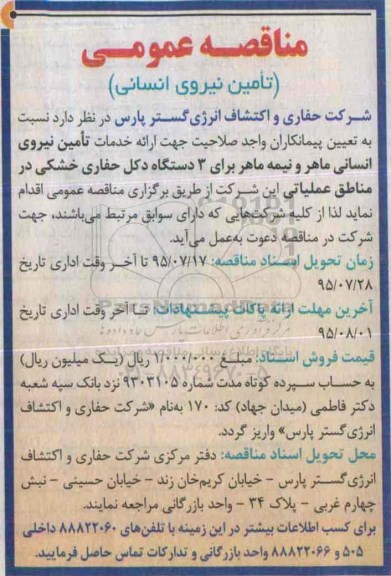 مناقصه عمومی
(تأمین نیروی انسانی)
شرکت حفاری و اکتشاف انرژی‌گستر پارس در نظر دارد نسبت
به تعیین پیمانکاران واجد صلاحیت جهت ارائه خدمات تأمین نیروی
انسانی ماهر و نیمه ماهر برای ۳ دستگاه دکل حفاری خشکی در
مناطق عملیاتی این شرکت از طریق برگزاری مناقصه عمومی اقدام
نماید لذا از کلیه شرکت‌هایی که دارای سوابق مرتبط می‌باشند، جهت
شرکت در مناقصه دعوت به‌عمل می‌آید.
زمان تحویل اسناد مناقصه: ۹۵/۰۷/۱۷ تا آخر وقت اداری تاریخ
۹۵/۰۷/۲۸
آخرین مهلت ارائه پاکات پیشنهادات: تا آخر وقت اداری تاریخ
۹۵/۰۸/۰۱
قیمت فروش اسناد: مبلغ ۱/۰۰۰/۰۰۰ ریال (یک میلیون ریال)
به حساب سپرده کوتاه مدت شماره ۹۳۰۳۱۰۵ نزد بانک سپه شعبه
دکتر فاطمی (میدان جهاد) کد: ۱۷۰ به‌نام «شرکت حفاری و اکتشاف
انرژی‌گستر پارس» واریز گردد.
محل تحویل اسناد مناقصه: دفتر مرکزی شرکت حفاری و اکتشاف
انرژی‌گستر پارس - خیابان کریم‌خان زند - خیابان حسینی - نبش
چهارم غربی - پلاک ۳۴ - واحد بازرگانی مراجعه نمایند.
برای کسب اطلاعات بیشتر در این زمینه با تلفن‌های ۸۸۸۲۲۰۶۰ داخلی
۵۰۵ و ۸۸۸۲۲۰۶۶ واحد بازرگانی و تدارکات تماس حاصل فرمایید.
ParsNamadData